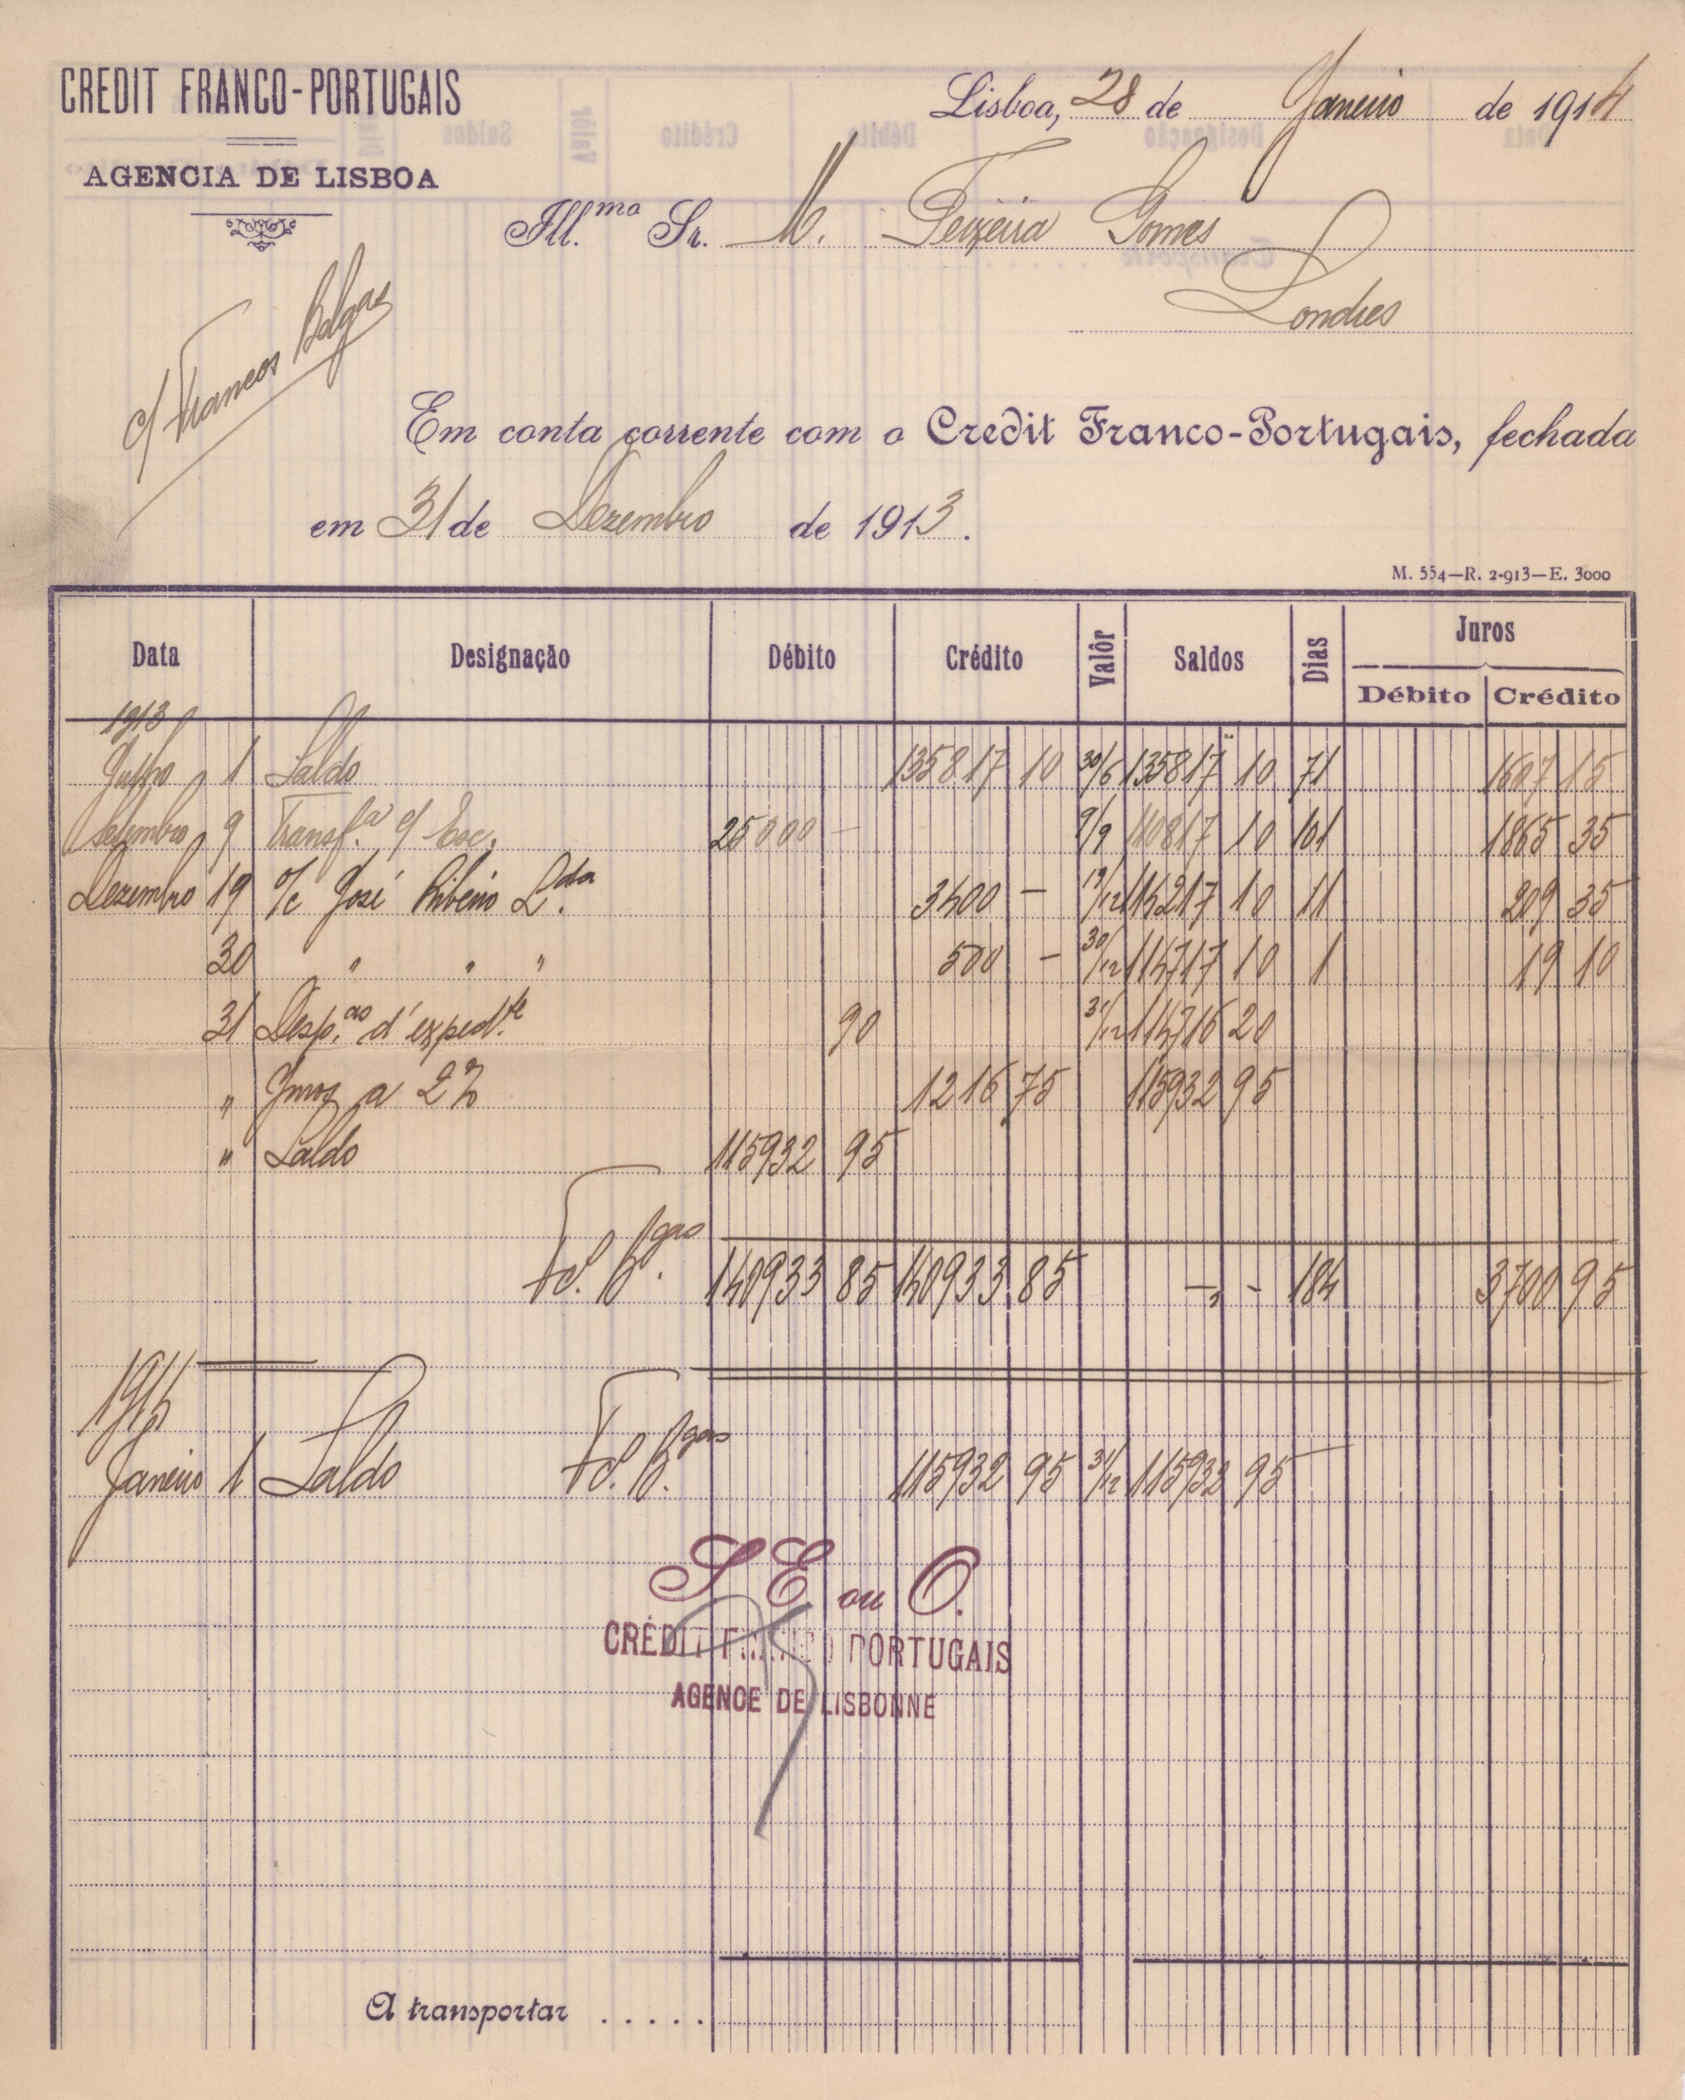 CREDIT FRANCO-PORTUGAIS
AGENCIA DE LISBOA
Lisboa, 28 de Janeiro de 1914
Ill.mo Sr. M. Teixeira Gomes
Londres
c/ Francos Belgas
Em conta corrente com o Credit Franco-Portugais, fechada
em 31 de Dezembro de 1913.
M. 554—R. 2-913—E. 3000
Data Designação Débito Crédito Valôr Saldos Dias Juros
Débito Crédito
1913
Julho 1 Saldo 135817 10 30/6 135817 10 71 1607 15
Setembro 9 Transf.a c/ Esc. 25000 — 9/9 110817 10 101 1865 35
Dezembro 19 o/c José Ribeiro L.da 3400 — 19/12 114217 10 11 209 35
30 " " " 500 — 30/12 114717 10 1 19 10
31 Desp.as d'exped.te 90 31/12 114716 20
" Juros a 2% 1216 75 115932 95
" Saldo 115932 95
Fcs. Bgas 140933 85 140933 85 —,- 184 3700 95
1914
Janeiro 1 Saldo Fcs. Bgas 115932 95 31/12 115932 95
S. E. ou O.
CRÉDIT FRANCO PORTUGAIS
AGENCE DE LISBONNE
A transportar . . . . .